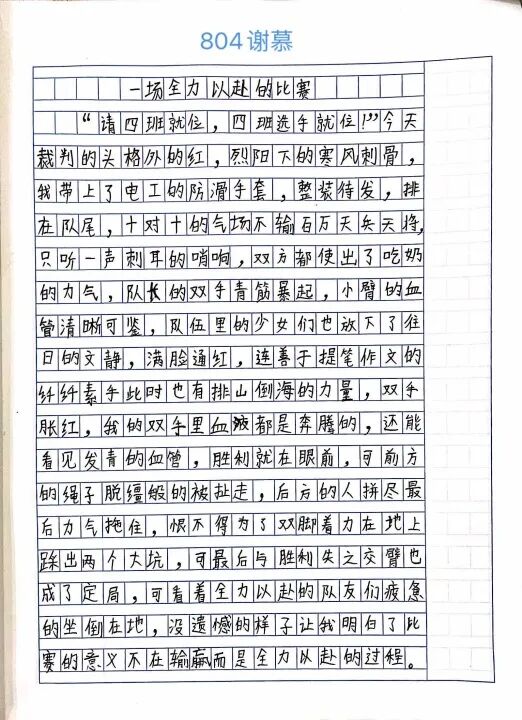 804谢慕
一场全力以赴的比赛
“请四班就位，四班选手就位！”今天
裁判的头格外的红，烈阳下的寒风刺骨，
我带上了电工的防滑手套，整装待发，排
在队尾，十对十的气场不输百万天兵天将，
只听一声刺耳的哨响，双方都使出了吃奶
的力气，队长的双手青筋暴起，小臂的血
管清晰可鉴，队伍里的少女们也放下了往
日的文静，满脸通红，连善于提笔作文的
纤纤素手此时也有排山倒海的力量，双手
胀红，我的双手里血液都是奔腾的，还能
看见发青的血管，胜利就在眼前，可前方
的绳子脱缰般的被扯走，后方的人拼尽最
后力气拖住，恨不得为了双脚着力在地上
踩出两个大坑，可最后与胜利失之交臂也
成了定局，可看着全力以赴的队友们疲惫
的坐倒在地，没遗憾的样子让我明白了比
赛的意义不在输赢而是全力以赴的过程。